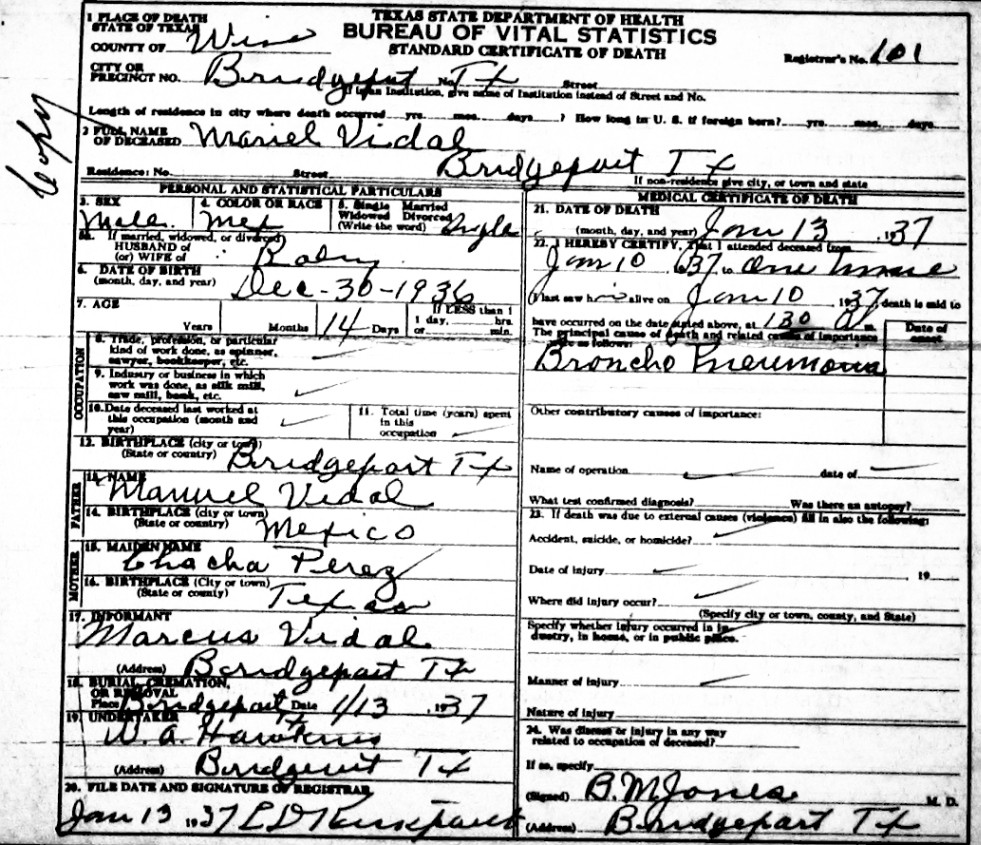 TEXAS STATE DEPARTMENT OF HEALTH
BUREAU OF VITAL STATISTICS
STANDARD CERTIFICATE OF DEATH
Registrar's No. 101
Copy
1 PLACE OF DEATH
STATE OF TEXAS
COUNTY OF Wise
CITY OR PRECINCT NO. Bridgeport Tx No. Street
If in an Institution, give name of Institution instead of Street and No.
Length of residence in city where death occurred yrs. mos. days ? How long in U. S. if foreign born? yrs. mos. days
2 FULL NAME OF DECEASED Mariel Vidal
Residence: No. Street Bridgeport Tx
If non-residence give city, or town and state
PERSONAL AND STATISTICAL PARTICULARS
3. SEX Male
4. COLOR OR RACE Mex
5. Single Married Widowed Divorced (Write the word) Single
5a. If married, widowed, or divorced
HUSBAND of
(or) WIFE of Baby
6. DATE OF BIRTH
(month, day, and year) Dec-30-1936
7. AGE Years Months 14 Days
If LESS than 1
1 day, hrs.
or min.
OCCUPATION
8. Trade, profession, or particular
kind of work done, as spinner,
sawyer, bookkeeper, etc.
9. Industry or business in which
work was done, as silk mill,
saw mill, bank, etc.
10. Date deceased last worked at
this occupation (month and
year)
11. Total time (years) spent
in this
occupation
12. BIRTHPLACE (city or town)
(State or country) Bridgeport Tx
FATHER
13. NAME
Manuel Vidal
14. BIRTHPLACE (city or town)
(State or country) Mexico
MOTHER
15. MAIDEN NAME
Chacha Perez
16. BIRTHPLACE (City or town)
(State or county) Texas
17. INFORMANT
Marcus Vidal
(Address) Bridgeport Tx
18. BURIAL, CREMATION,
OR REMOVAL
Place Bridgeport Date 1/13 1937
19. UNDERTAKER
W. A. Hawkins
(Address) Bridgeport Tx
20. FILE DATE AND SIGNATURE OF REGISTRAR
Jan 13 1937
MEDICAL CERTIFICATE OF DEATH
21. DATE OF DEATH
(month, day, and year) Jan 13 1937
22. I HEREBY CERTIFY, That I attended deceased from
Jan 10 1937 to One time
(I last saw him alive on Jan 10 1937, death is said to
have occurred on the date stated above, at 130 A m.
The principal causes of death and related causes of importance
are as follows:
Date of onset
Broncho Pneumonia
Other contributory causes of importance:
Name of operation date of
What test confirmed diagnosis? Was there an autopsy?
23. If death was due to external causes (violence) fill in also the following:
Accident, suicide, or homicide?
Date of injury 19
Where did injury occur?
(Specify city or town, county, and State)
Specify whether injury occurred in in-
dustry, in home, or in public place.
Manner of injury
Nature of injury
24. Was disease or injury in any way
related to occupation of deceased?
If so, specify
(Signed) B. M Jones M. D.
(Address) Bridgeport Tx